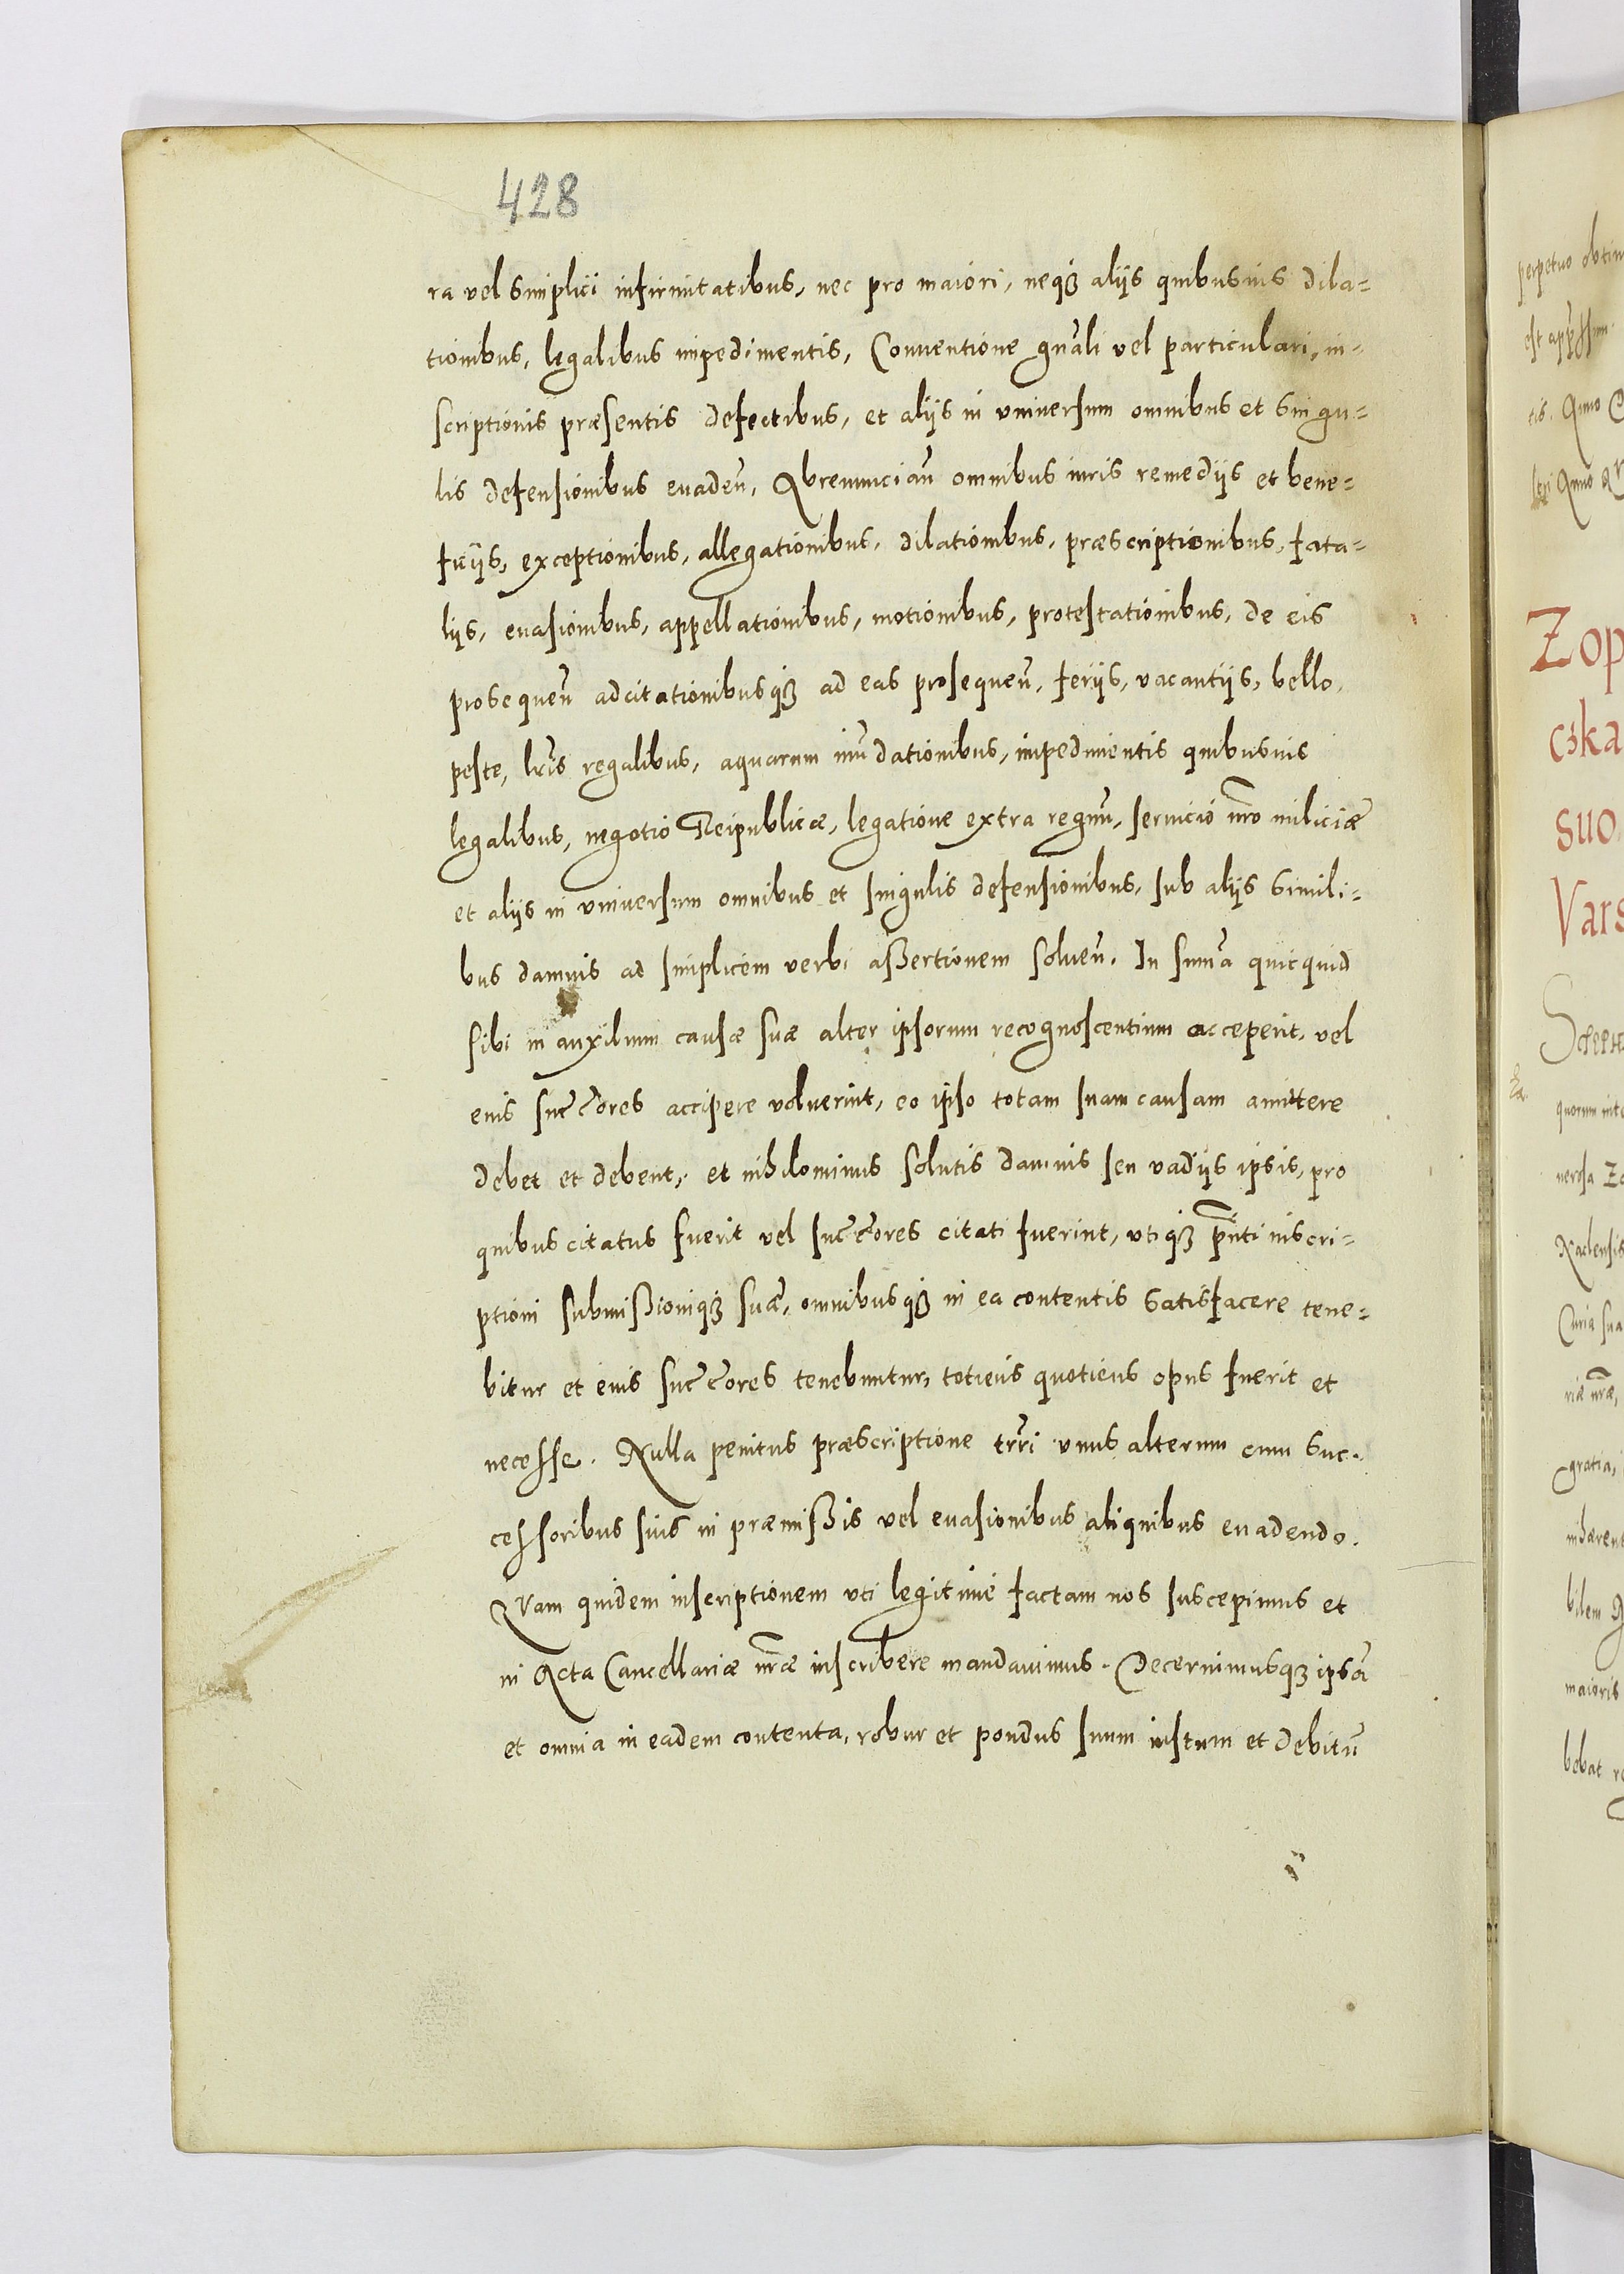 428
ra vel simplici infirmitatibus, nec pro maiori, neq₃ alijs quibusuis dila=
tionibus, legalibus impedimentis, Conuentione gn̄ali vel particulari, in=
scriptionis præsentis defectibus, et alijs in vniuersum omnibus et singu=
lis defensionibus euadeñ, Abrenunciañ omnibus iuris remedijs et bene=
ficijs, exceptionibus, allegationibus, dilationibus, præscriptionibus, fata=
lijs, euasionibus, appellationibus, motionibus, protestationibus, de eis
prosequeñ adcitationibusq₃ ad eas prosequeñ, ferijs, vacantijs, bello,
peste, lr̄is regalibus, aquarum inūdationibus, impedimentis quibusuis
legalibus, negotio Reipublicæ, legatione extra regnū, seruicio nr̄o miliciæ
et alijs in vniuersum omnibus et singulis defensionibus, sub alijs simili=
bus damnis ad simplicem verbi aßertionem solueñ. In sum̄a quicquid
sibi in auxilium causæ suæ alter ipsorum recognoscentium acceperit, vel
eius suc̄c̄ores accipere voluerint, eo ipso totam suam causam amittere
debet et debent, et nihilominus solutis damnis seu vadijs ipsis, pro
quibus citatus fuerit vel suc̄c̄ores citati fuerint, vtiq₃ p̄nti inscri=
ptioni submißioniq₃ suæ, omnibusq₃ in ea contentis satisfacere tene=
bitur et eius suc̄c̄ores tenebuntur, totiens quotiens opus fuerit et
necesse. Nulla penitus præscriptione tr̄ri vnus alterum cum suc=
cessoribus suis in præmißis vel euasionibus aliquibus euadendo.
Quam quidem inscriptionem vti legitime factam nos suscepimus et
in Acta Cancellariæ nr̄æ inscribere mandauimus. Decernimusq₃ ipsā
et omnia in eadem contenta, robur et pondus suum iustum et debitū
perpetuo obtin
tis. Anno
Zop
cska
suo
Vars
quorum inte
nerosa
Naclensis
Curiæ sua
riæ nr̄æ,
gratia,
inhærent
bilem
maioris
bebat